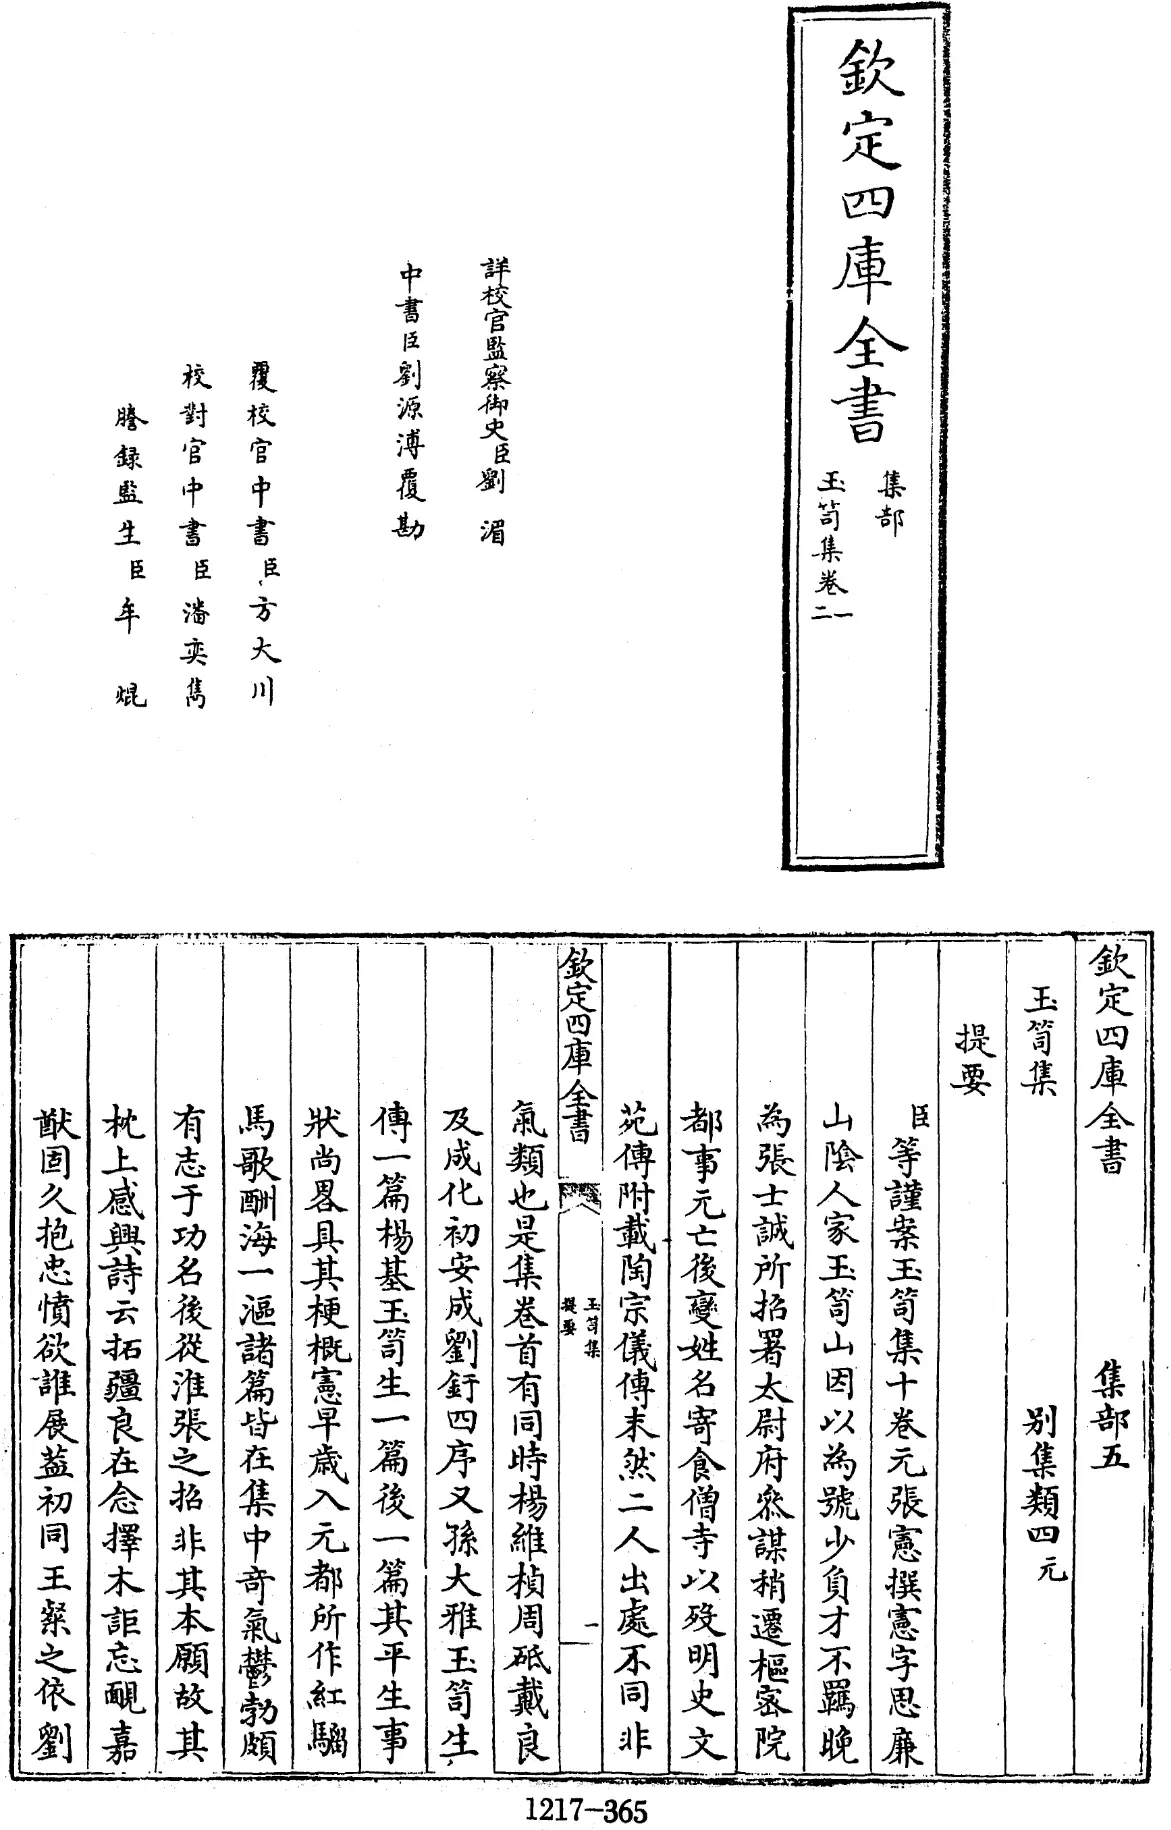 欽定四庫全書
集部
玉笥集卷一二
詳校官監察御史臣劉湄
中書臣劉源溥覆勘
覆校官中書臣方大川
校對官中書臣潘奕雋
謄錄監生臣牟焜
欽定四庫全書 集部五
玉笥集 别集類四元
提要
臣等謹案玉笥集十卷元張憲撰憲字思廉
山隂人家玉笥山因以為號少負才不羈晚
為張士誠所招署太尉府叅謀稍遷樞宻院
都事元亡後變姓名寄食僧寺以歿明史文
苑傳附載陶宗儀傳末然二人出處不同非
欽定四庫全書
玉笥集
提要
一
氣類也是集卷首有同時楊維楨周砥戴良
及成化初安成劉釪四序又孫大雅玉笥生
傳一篇楊基玉笥生一篇後一篇其平生事
狀尚畧具其梗概憲早歲入元都所作紅騮
馬歌酬海一漚諸篇皆在集中竒氣鬱勃頗
有志于功名後從淮張之招非其本願故其
枕上感興詩云拓疆良在念擇木詎忘覸嘉
猷固久抱忠憤欲誰展葢初同王粲之依劉
1217-365